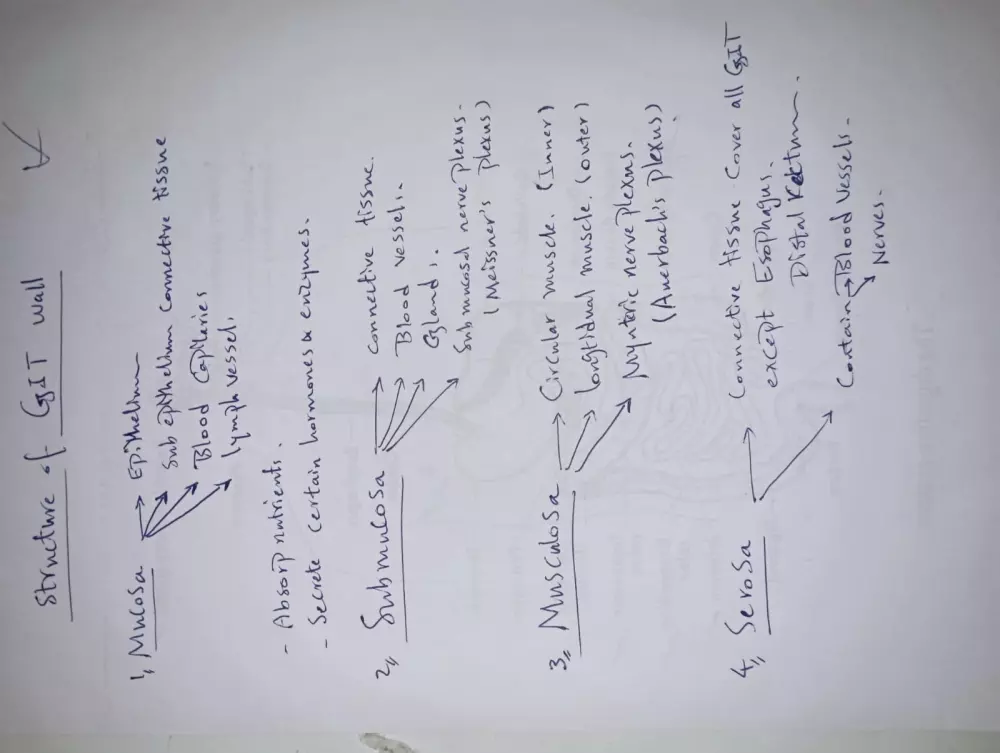 Structure of GIT wall
1,, Mucosa → Epithelium
Sub epithelium connective tissue
Blood Capilaries
lymph vessel.
- Absorp nutrients.
- Secrete certain hormones & enzymes.
2,, Submucosa → connective tissue.
Blood vessel.
Gland.
Submucosal nerve plexus.
(Meissner's plexus)
3,, Musculosa → Circular muscle. (Inner)
longtidual muscle. (outer)
Mynteric nerve plexus.
(Auerbach's plexus)
4,, Serosa → Connective tissue Cover all GIT
except Esophagus.
Distal Rectum.
Contain → Blood Vessels.
Nerves.